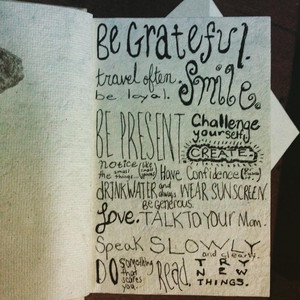 Be Grateful.
travel often. Smile.
be loyal.
BE PRESENT Challenge
yourself
CREATE.
notice the small things... Have Confidence
DRINK WATER and always WEAR SUNSCREEN.
Be generous.
Love. TALK TO YOUR Mom.
Speak SLOWLY
and clearly.
DO Something that scares you. Read. TRY NEW THINGS.